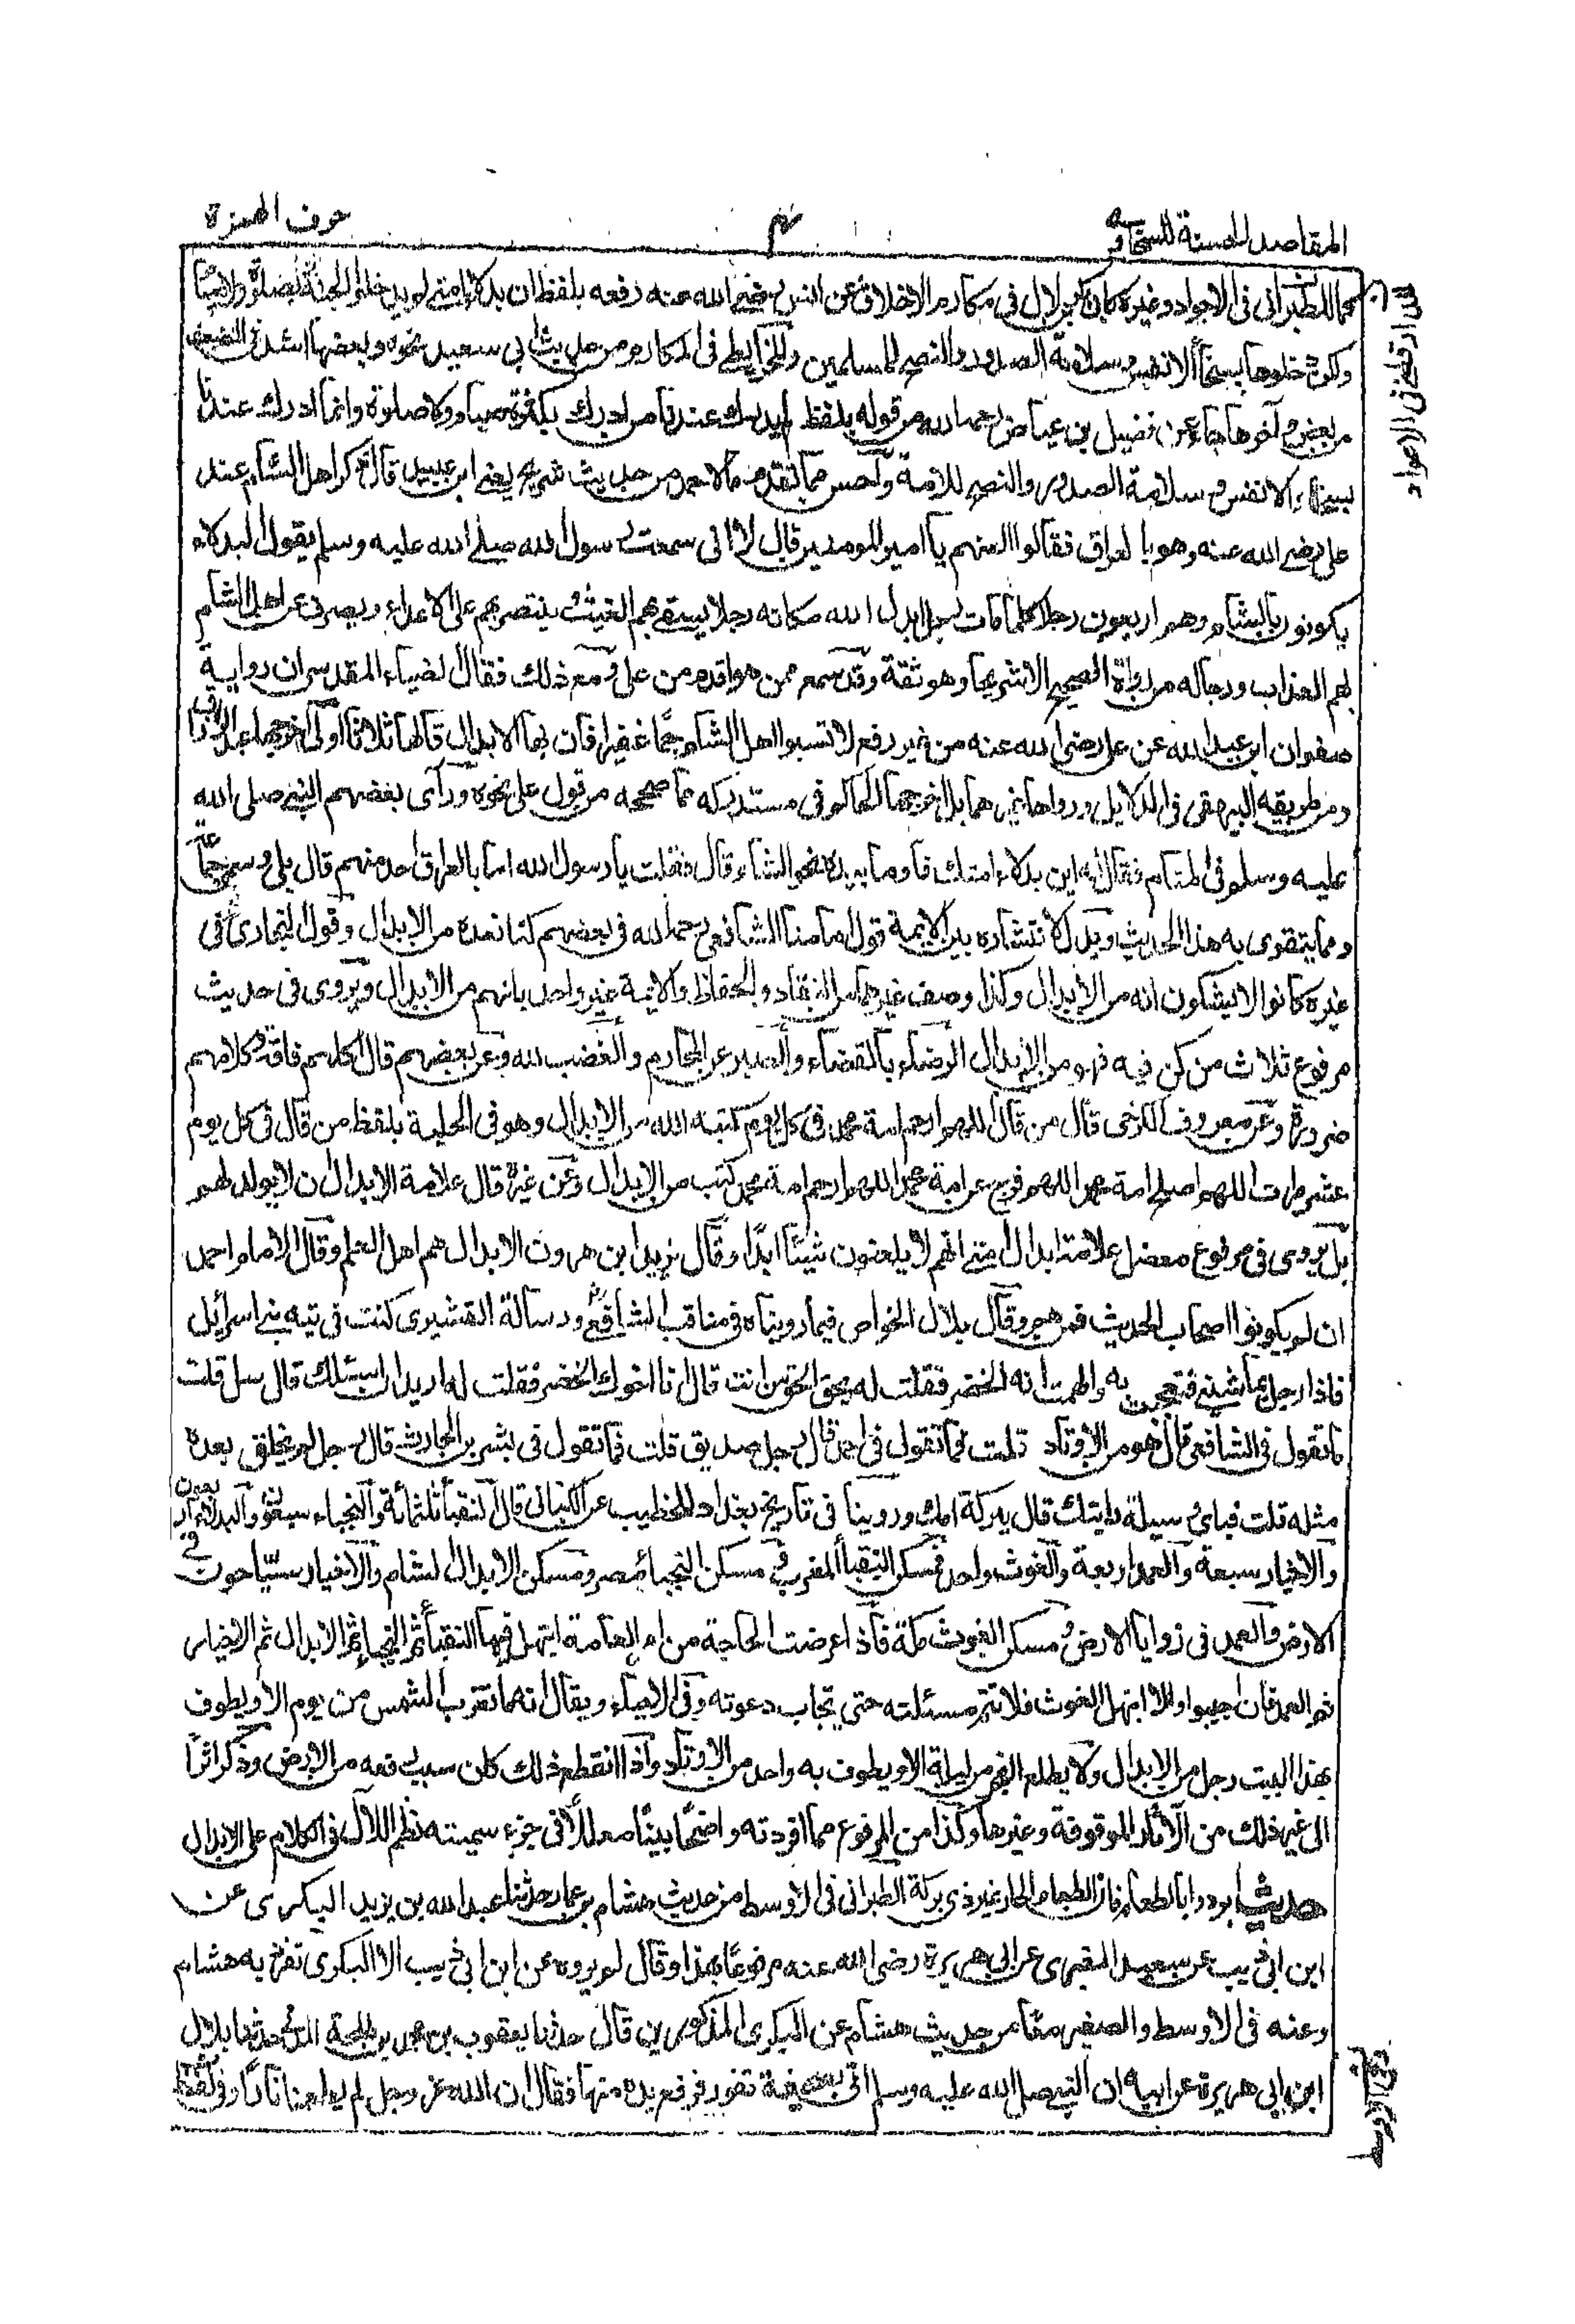 المقاصد الحسنة للسخاوي
٤
حرف الهمزة
كما للطبراني في الاجواد وغيره كابي بكر بن لال في مكارم الاخلاق عن انس رضي الله عنه رفعه بلفظ ان بدلاء امتي لم يدخلوا الجنة بصلوة ولا صيام
ولكن دخلوها بسخاء الانفس وسلامة الصدور والنصح للمسلمين وللخرايطي في المكارم من حديث ابي سعيد نحوه وبعضها اشد في الضعف
من بعض وآخرها جاء عن فضيل بن عياض رحمه الله من قوله بلفظ لم يدرك عندنا من ادرك بكثرة صيام ولا صلوة وانما ادرك عندنا
بسخاء الانفس وسلامة الصدور والنصح للامة وآحسن مما تقدم ما لاحمد من حديث شريح يعني ابن عبيد قال ذكر اهل الشام عند
علي رضي الله عنه وهو بالعراق فقالوا العنهم يا امير المومنين قال لا اني سمعت رسول الله صلى الله عليه وسلم يقول البدلاء
يكونون بالشام وهم اربعون رجلا كلما مات رجل ابدل الله مكانه رجلا يسقى بهم الغيث وينتصر بهم على الاعداء ويصرف عن اهل الشام
بهم العذاب ورجاله من رواة الصحيح الا شريحا وهو ثقة وقد سمع ممن هو اقدم من علي ومع ذلك فقال الضياء المقدسي ان رواية
صفوان ابن عبد الله عن علي رضي الله عنه من غير رفع لا تسبوا اهل الشام جمًا غفيرا فان بها الابدال قالها ثلاثا اولى اخرجها عبد الرزاق
ومن طريقه البيهقي في الدلايل ورواها غيرهما بل اخرجها الحاكم في مستدركه مما صححه من قول علي نحوه ورآى بعضهم النبي صلى الله
عليه وسلم في المنام فقال له اين بدلاء امتك فاومأ بيده نحو الشام قال فقلت يا رسول الله اما بالعراق احد منهم قال بلى وسمى جماعة
ومما يتقوى به هذا الحديث ويدل لانتشاره بين الايمة قول امامنا الشافعي رحمه الله في بعضهم كنا نعده من الابدال وقول البخاري في
غيره كانوا لا يشكون انه من الابدال وكذا وصف غيرهما من النقاد والحفاظ والايمة غير واحد بانهم من الابدال ويروى في حديث
مرفوع ثلاث من كن فيه فهو من الابدال الرضاء بالقضاء والصبر عن المحارم والغضب لله وعن بعضهم قال اكلهم فاقة وكلامهم
ضرورة وعن معروف الكرخي قال من قال اللهم ارحم امة محمد في كل يوم كتبه الله من الابدال وهو في الحلية بلفظ من قال في كل يوم
عشر مرات اللهم اصلح امة محمد اللهم فرج عن امة محمد اللهم ارحم امة محمد كتب من الابدال وعن غيره قال علامة الابدال ان لا يولد لهم
بل يروى في مرفوع معضل علامة ابدال امتي انهم لا يلعنون شيئًا ابدًا وقال يزيد ابن هرون الابدال هم اهل العلم وقال الامام احمد
ان لم يكونوا اصحاب الحديث فمن هم وقال بلال الخواص فيما رويناه في مناقب الشافعي ورسالة القشيري كنت في تيه بني اسرائيل
فاذا رجل يماشيني فتعجبت به والهمت انه الخضر فقلت له بحق الحق من انت قال انا اخوك الخضر فقلت له اريد ان اسئلك قال سل قلت
ما تقول في الشافعي قال هو من الاوتاد قلت فما تقول في احمد قال رجل صديق قلت فما تقول في بشر بن الحارث قال رجل لم يخلق بعده
مثله قلت فباي وسيلة رايتك قال ببركة امك وروينا في تاريخ بغداد للخطيب عن الكتاني قال النقباء ثلثمائة والنجباء سبعون والبدلاء اربعون
والاخيار سبعة والعمد اربعة والغوث واحد فمسكن النقباء المغرب ومسكن النجباء مصر ومسكن الابدال الشام والاخيار سياحون في
الارض والعمد في زوايا الارض ومسكن الغوث مكة فاذا عرضت الحاجة من امر العامة ابتهل فيها النقباء ثم النجباء ثم الابدال ثم الاخيار
ثم العمد فان اجيبوا والا ابتهل الغوث فلا تتم مسئلته حتى تجاب دعوته وفي الاحياء ويقال انه ما تغرب الشمس من يوم الا ويطوف
بهذا البيت رجل من الابدال ولا يطلع الفجر من ليلة الا ويطوف به واحد من الاوتاد واذا انقطع ذلك كان سبب رفعه من الارض وذكر اثرًا
الى غير ذلك من الآثار الموقوفة وغيرها وكذا من المرفوع مما افردته واضحًا بينًا معللًا في جزء سميته نظم اللآل في الكلام على الابدال
حديث ابردوا بالطعام فان الطعام الحار غير ذي بركة الطبراني في الاوسط من حديث هشام بن عمار حدثنا عبد الله بن يزيد البكري عن
ابن ابي ذيب عن سعيد المقبري عن ابي هريرة رضي الله عنه مرفوعًا بهذا وقال لم يروه عن ابن ابي ذيب الا البكري تفرد به هشام
وعنه في الاوسط والصغير معًا من حديث هشام عن البكري المذكور قال حدثنا يعقوب بن محمد بن طلحة المدني حدثنا بلال
ابن ابي هريرة عن ابيه ان النبي صلى الله عليه وسلم اتي بصحفة تفور فرفع يده منها فقال ان الله عز وجل لم يطعمنا نارًا وفي لفظ